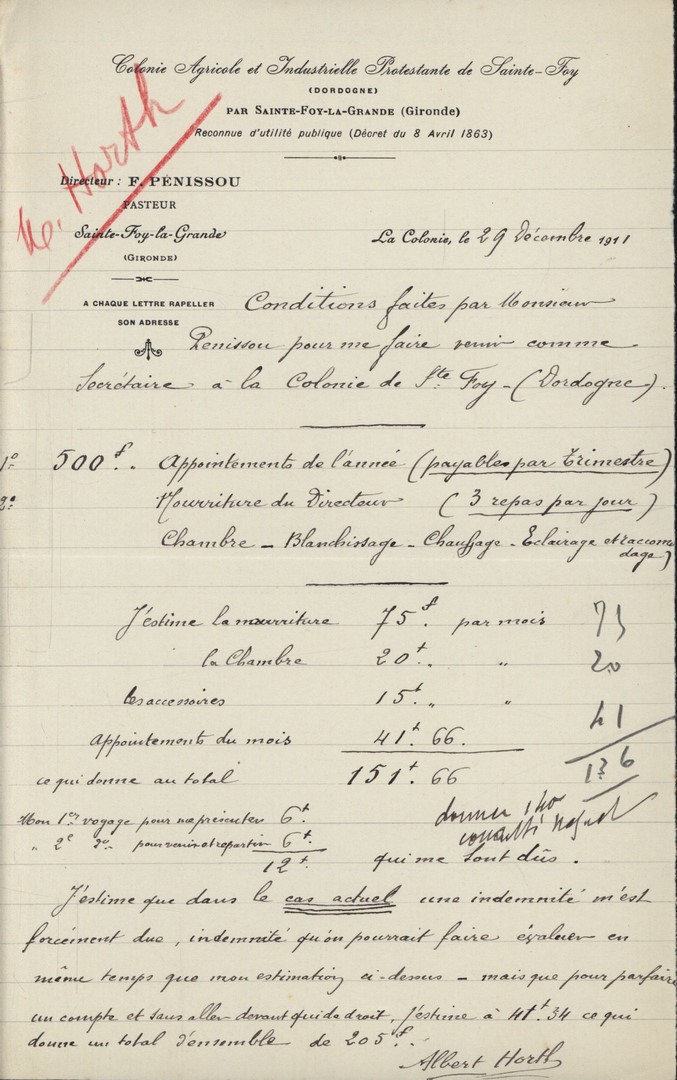 Colonie Agricole et Industrielle Protestante de Sainte-Foy
(DORDOGNE)
PAR SAINTE-FOY-LA-GRANDE (Gironde)
Reconnue d'utilité publique (Décret du 8 Avril 1863)
M. Horth
Directeur : F. PÉNISSOU
PASTEUR
Sainte-Foy-la-Grande
(GIRONDE)
La Colonie, le 29 Décembre 1911
A CHAQUE LETTRE RAPELLER
SON ADRESSE
Conditions faites par Monsieur
Penissou pour me faire venir comme
Secrétaire à la Colonie de Ste Foy - (Dordogne).
1º 500f. „ Appointements de l'année (payables par Trimestre)
2º Nourriture du Directeur (3 repas par jour)
Chambre - Blanchissage - Chauffage - Eclairage et raccommo
dage)
J'estime la nourriture 75f. par mois 75
la Chambre 20f. „ „ 20
les accessoires 15f. „ „
Appointements du mois 41f. 66. 41
ce qui donne au total 151f. 66 136
Mon 1er voyage pour me présenter 6f.
„ 2e dº pour venir et repartir 6f. donner 140
12f. qui me sont dûs.
J'estime que dans le cas actuel une indemnité m'est
forcément due, indemnité qu'on pourrait faire évaluer en
même temps que mon estimation ci-dessus - mais que pour parfaire
un compte et sans aller devant qui de droit, j'estime à 41f. 34 ce qui
donne un total d'ensemble de 205f.
Albert Horth